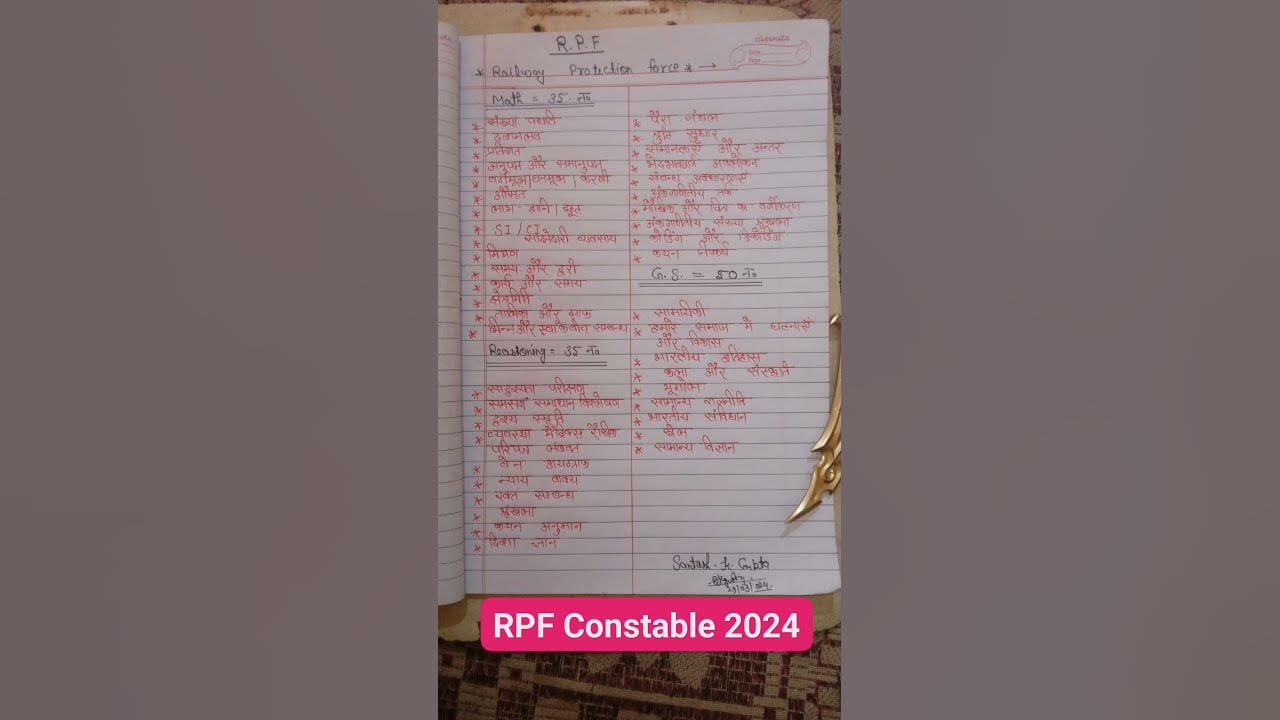 R.P.F
classmate
Date
Page
* Railway Protection force * →
Math = 35 न०
* संख्या पद्धति
* दशमलव
* प्रतिशत
* अनुपात और समानुपात
* वर्गमूल / घनमूल / करणी
* औसत
* लाभ - हानि / छूट
* SI / CI
* साझेदारी व्यवसाय
* मिश्रण
* समय और दूरी
* कार्य और समय
* क्षेत्रमिति
* तालिका और ग्राफ
* भिन्न और सम्बन्ध
Reasoning = 35 न०
* सादृश्यता परीक्षण
* समस्या समाधान विश्लेषण
* दृश्य स्मृति
* व्यवस्था मैट्रिक्स
* वेन डायग्राफ
* न्याय वाक्य
* रक्त सम्बन्ध
* श्रृंखला
* कथन अनुमान
* दिशा ज्ञान
* पैरा जंबल
* त्रुटि सुधार
* समानताएं और अन्तर
* अवलोकन
* संबन्ध अवधारणाएं
* अंकगणितीय तर्क
* मौखिक और चित्र का वर्गीकरण
* अंकगणितीय संख्या श्रृंखला
* कोडिंग और डिकोडिंग
* कथन निष्कर्ष
G.S. = 50 न०
* सामायिकी
* हमारे समाज में घटनाएं
और विकास
* भारतीय इतिहास
* कला और संस्कृति
* भूगोल
* सामान्य राजनीति
* भारतीय संविधान
* खेल
* सामान्य विज्ञान
Santosh. Kr. Gupta
RPF Constable 2024